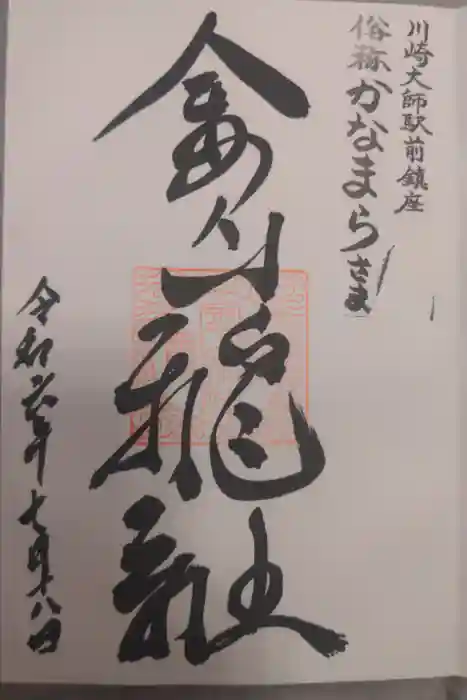 川崎大師駅前鎮座
俗称かなまらさま
金山神社
令和六年七月十八日